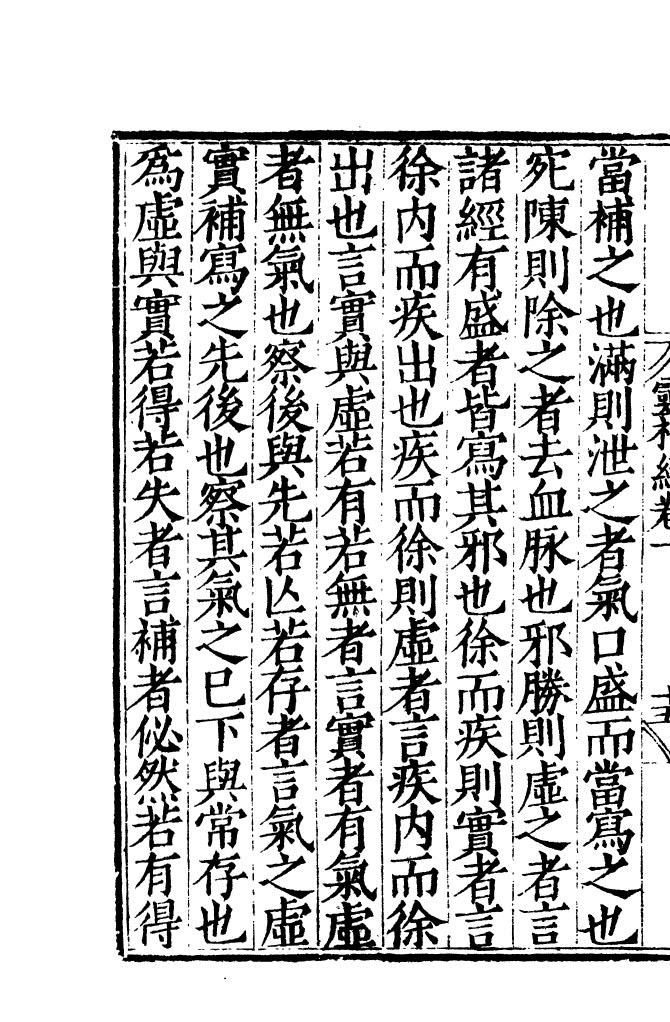 靈樞經卷一
當補之也滿則泄之者氣口盛而當寫之也
宛陳則除之者去血脉也邪勝則虛之者言
諸經有盛者皆寫其邪也徐而疾則實者言
徐内而疾出也疾而徐則虛者言疾内而徐
出也言實與虛若有若無者言實者有氣虛
者無氣也察後與先若亾若存者言氣之虛
實補寫之先後也察其氣之巳下與常存也
爲虛與實若得若失者言補者佖然若有得